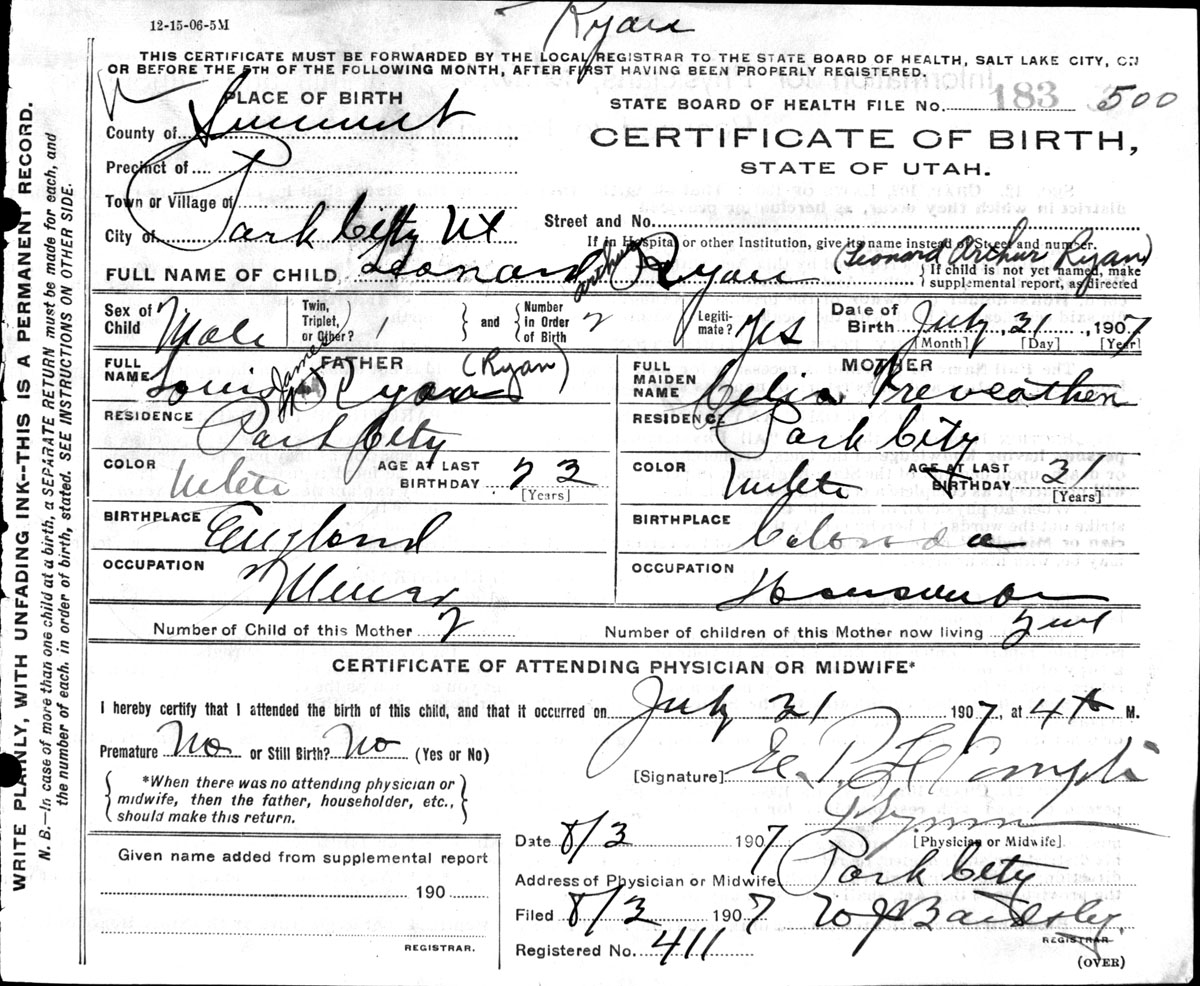 12-15-06-5M
Ryan
THIS CERTIFICATE MUST BE FORWARDED BY THE LOCAL REGISTRAR TO THE STATE BOARD OF HEALTH, SALT LAKE CITY, ON
OR BEFORE THE 5TH OF THE FOLLOWING MONTH, AFTER FIRST HAVING BEEN PROPERLY REGISTERED.
PLACE OF BIRTH
STATE BOARD OF HEALTH FILE No. 183 500
County of Summit
CERTIFICATE OF BIRTH,
STATE OF UTAH.
Precinct of
Town or Village of
City of Park City Ut
Street and No.
If in Hospital or other Institution, give its name instead of Street and number.
FULL NAME OF CHILD Leonard Arthur Ryan (Leonard Arthur Ryan)
If child is not yet named, make
supplemental report, as directed
Sex of Child Male
Twin, Triplet, or Other? 1 and Number in Order of Birth 2
Legitimate? Yes
Date of Birth July 31, 1907
[Month] [Day] [Year]
FATHER
FULL NAME Louis James Ryan (Ryan)
RESIDENCE Park City
COLOR White AGE AT LAST BIRTHDAY 23
[Years]
BIRTHPLACE England
OCCUPATION Miner
MOTHER
FULL MAIDEN NAME Celia
RESIDENCE Park City
COLOR White AGE AT LAST BIRTHDAY 21
[Years]
BIRTHPLACE
OCCUPATION
Number of Child of this Mother 2
Number of children of this Mother now living
CERTIFICATE OF ATTENDING PHYSICIAN OR MIDWIFE*
I hereby certify that I attended the birth of this child, and that it occurred on July 31 1907, at 4 M.
Premature No or Still Birth? No (Yes or No)
*When there was no attending physician or
midwife, then the father, householder, etc.,
should make this return.
[Signature]
[Physician or Midwife]
Date 8/3 1907
Address of Physician or Midwife Park City
Filed 8/3 1907 W J Bardsley
REGISTRAR
Registered No. 411
(OVER)
Given name added from supplemental report
190
REGISTRAR.
WRITE PLAINLY, WITH UNFADING INK--THIS IS A PERMANENT RECORD.
N. B.—In case of more than one child at a birth, a SEPARATE RETURN must be made for each, and
the number of each, in order of birth, stated. SEE INSTRUCTIONS ON OTHER SIDE.